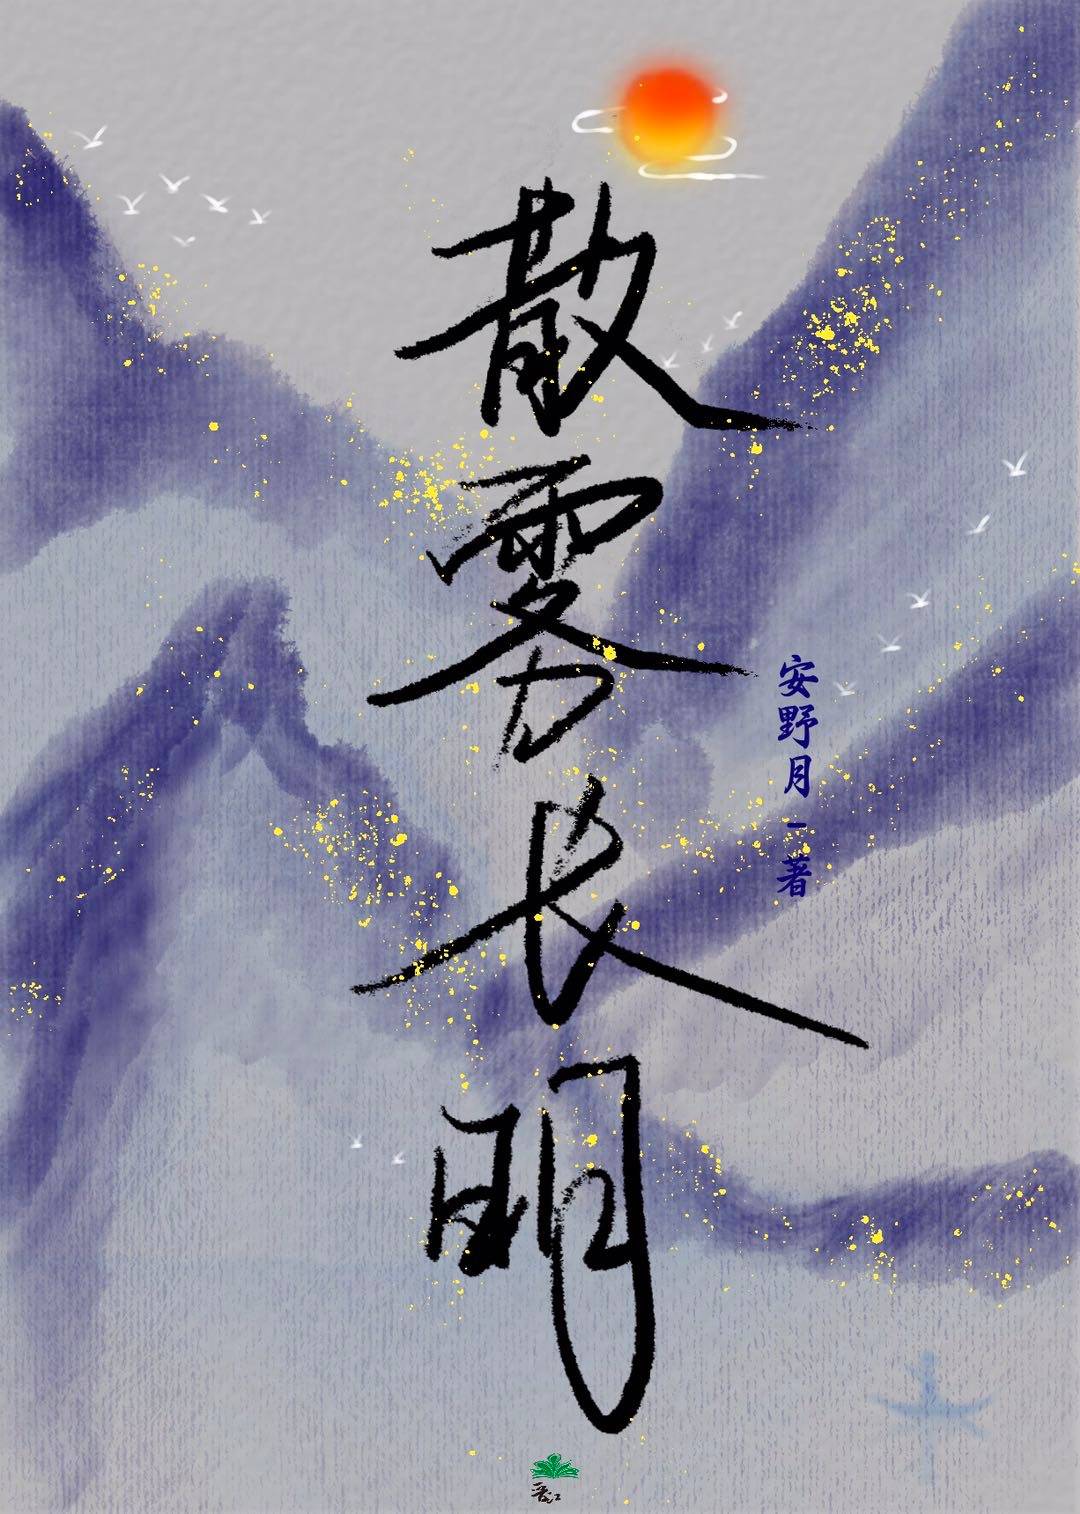 散雾长明
安野月-著
晋江